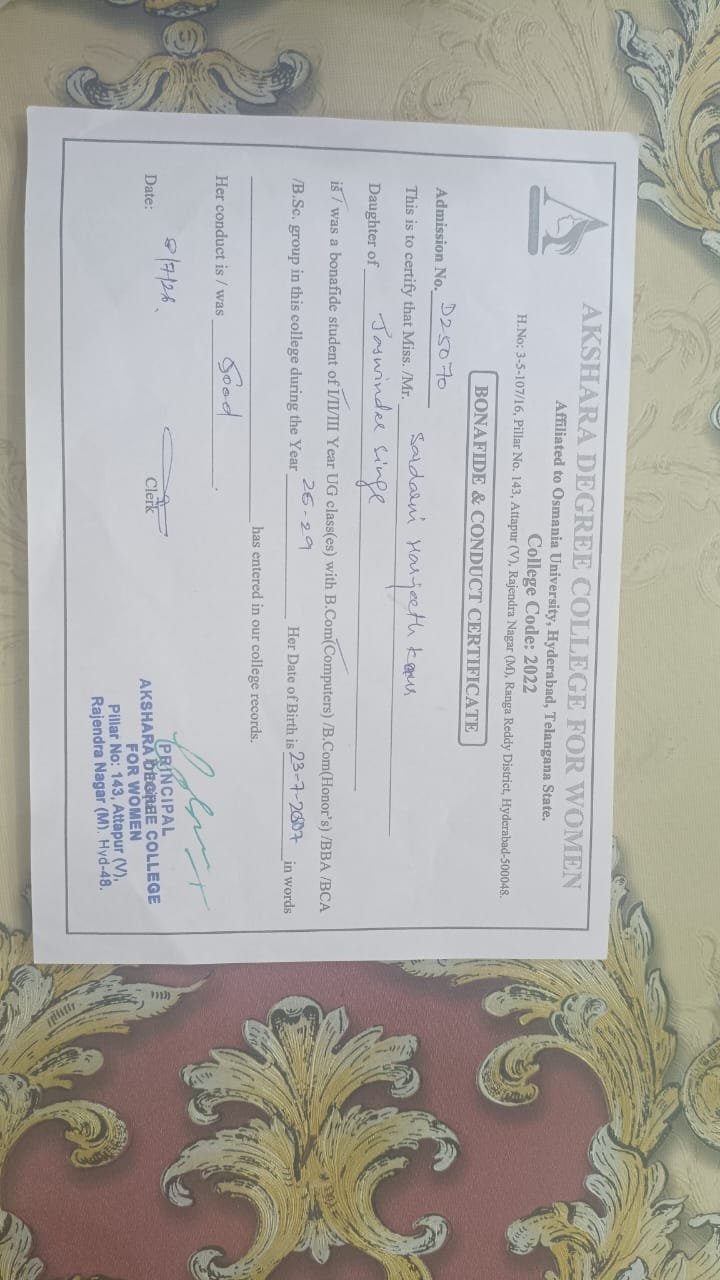 AKSHARA DEGREE COLLEGE FOR WOMEN
Affiliated to Osmania University, Hyderabad, Telangana State.
College Code: 2022
H.No: 3-5-107/16, Pillar No. 143, Attapur (V), Rajendra Nagar (M), Ranga Reddy District, Hyderabad-500048.
BONAFIDE & CONDUCT CERTIFICATE
Admission No. D25070
This is to certify that Miss. /Mr. Sardarni Harjeeth Kaur
Daughter of Jaswinder Singe
is / was a bonafide student of I/II/III Year UG class(es) with B.Com(Computers) /B.Com(Honor's) /BBA /BCA
/B.Sc. group in this college during the Year 25-29 Her Date of Birth is 23-7-2007 in words
has entered in our college records.
Her conduct is / was Good.
Date: 8/7/26. Clerk
PRINCIPAL
AKSHARA DEGREE COLLEGE
FOR WOMEN
Pillar No: 143, Attapur (V),
Rajendra Nagar (M). Hyd-48.